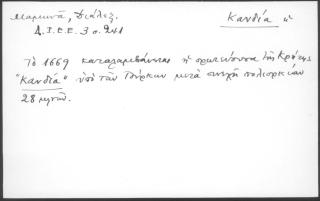 Μαρμαρᾶ, Διάλεξ.
Δ.Ι.Ε.Ε. 3 σ. 241
Κανδία ἡ
Τὸ 1669 καταλαμβάνεται ἡ πρωτεύουσα τῆς Κρήτης
"Κανδία" ὑπὸ τῶν Τούρκων μετὰ στενὴ πολιορκίαν
28 μηνῶν.